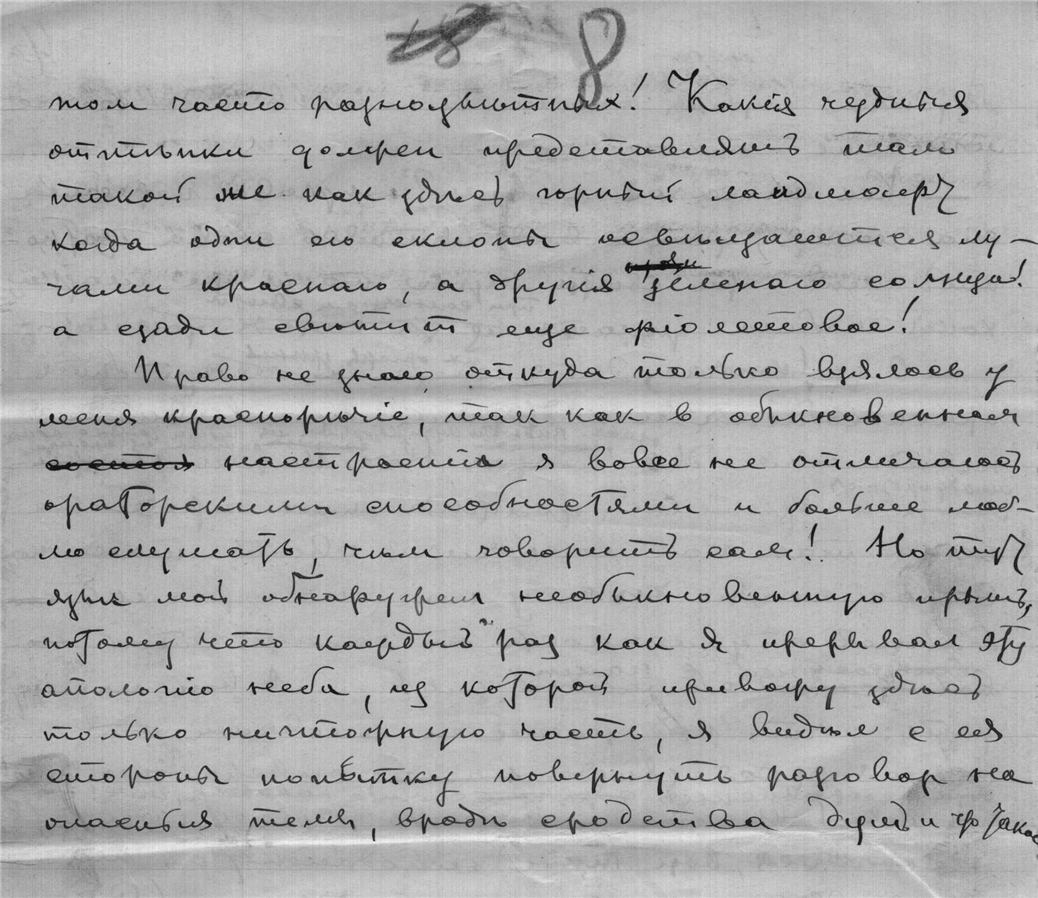 8
том часто разноцвѣтных! Какія чудныя
оттѣнки должен представлять там
такой же как здѣсь горный ландшафт
когда одни его склоны освѣщаются лу-
чами краснаго, а другія зеленаго солнца!
а сзади свѣтит еще фіолетовое!
Право не знаю откуда только взялось у
меня краснорѣчіе, так как в обыкновенном
настроеніи я вовсе не отличаюсь
ораторскими способностями и больше люб-
лю слушать, чѣм говорить сам! Но тут
язык мой обнаружил необыкновенную прыть,
потому что каждый раз как я прерывал эту
апологію неба, из которой привожу здѣсь
только ничтожную часть, я видѣл с ея
стороны попытку повернуть разговор на
опасныя темы, вродѣ сродства душ и